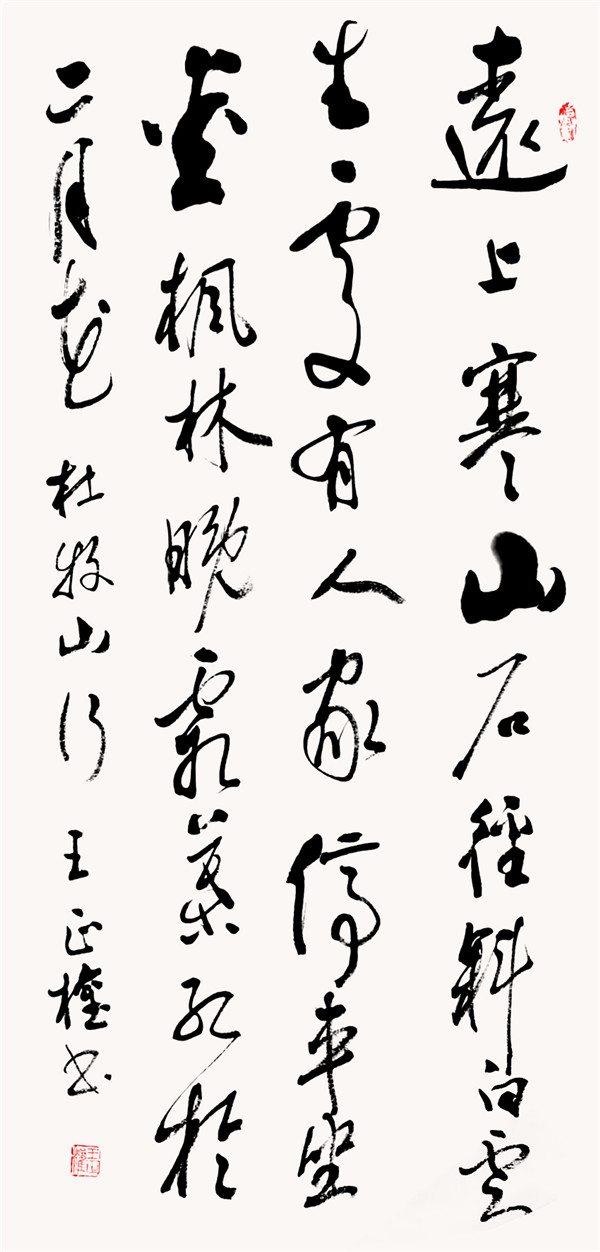 遠上寒山石徑斜白雲
生處有人家停車坐
愛楓林晚霜葉紅於
二月花 杜牧山行 王正權書